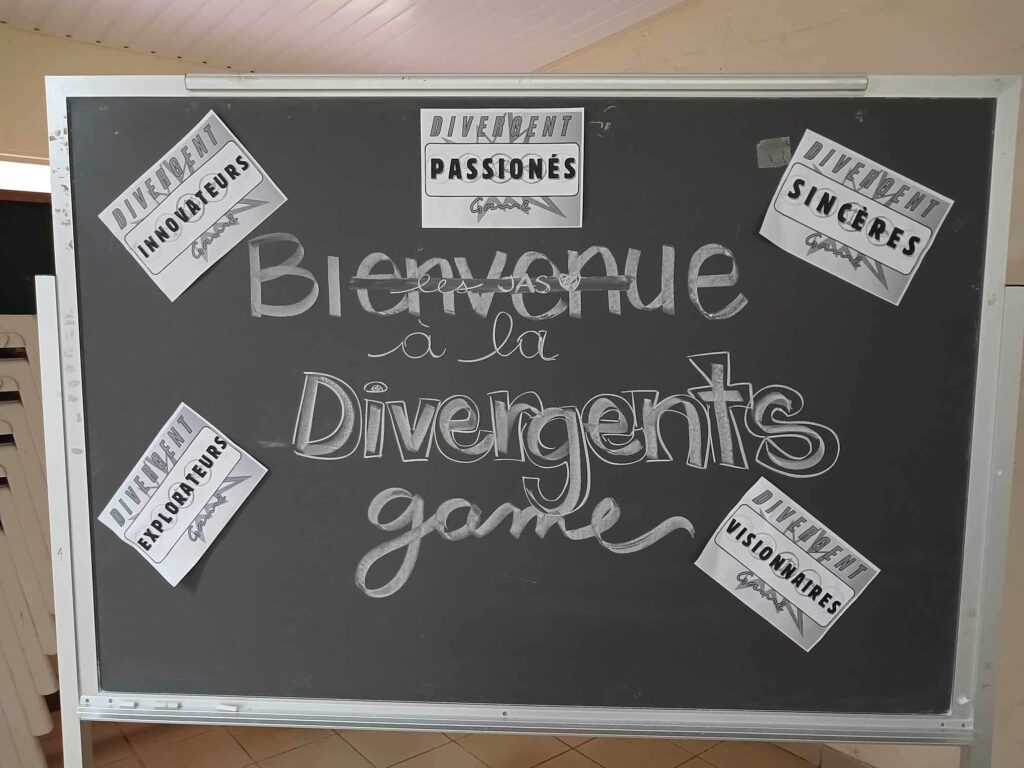 DIVERGENT
PASSIONÉS
Game
DIVERGENT
INNOVATEURS
Game
DIVERGENT
SINCÈRES
Game
Bienvenue
les JAS
à la
Divergents
game
DIVERGENT
EXPLORATEURS
Game
DIVERGENT
VISIONNAIRES
Game